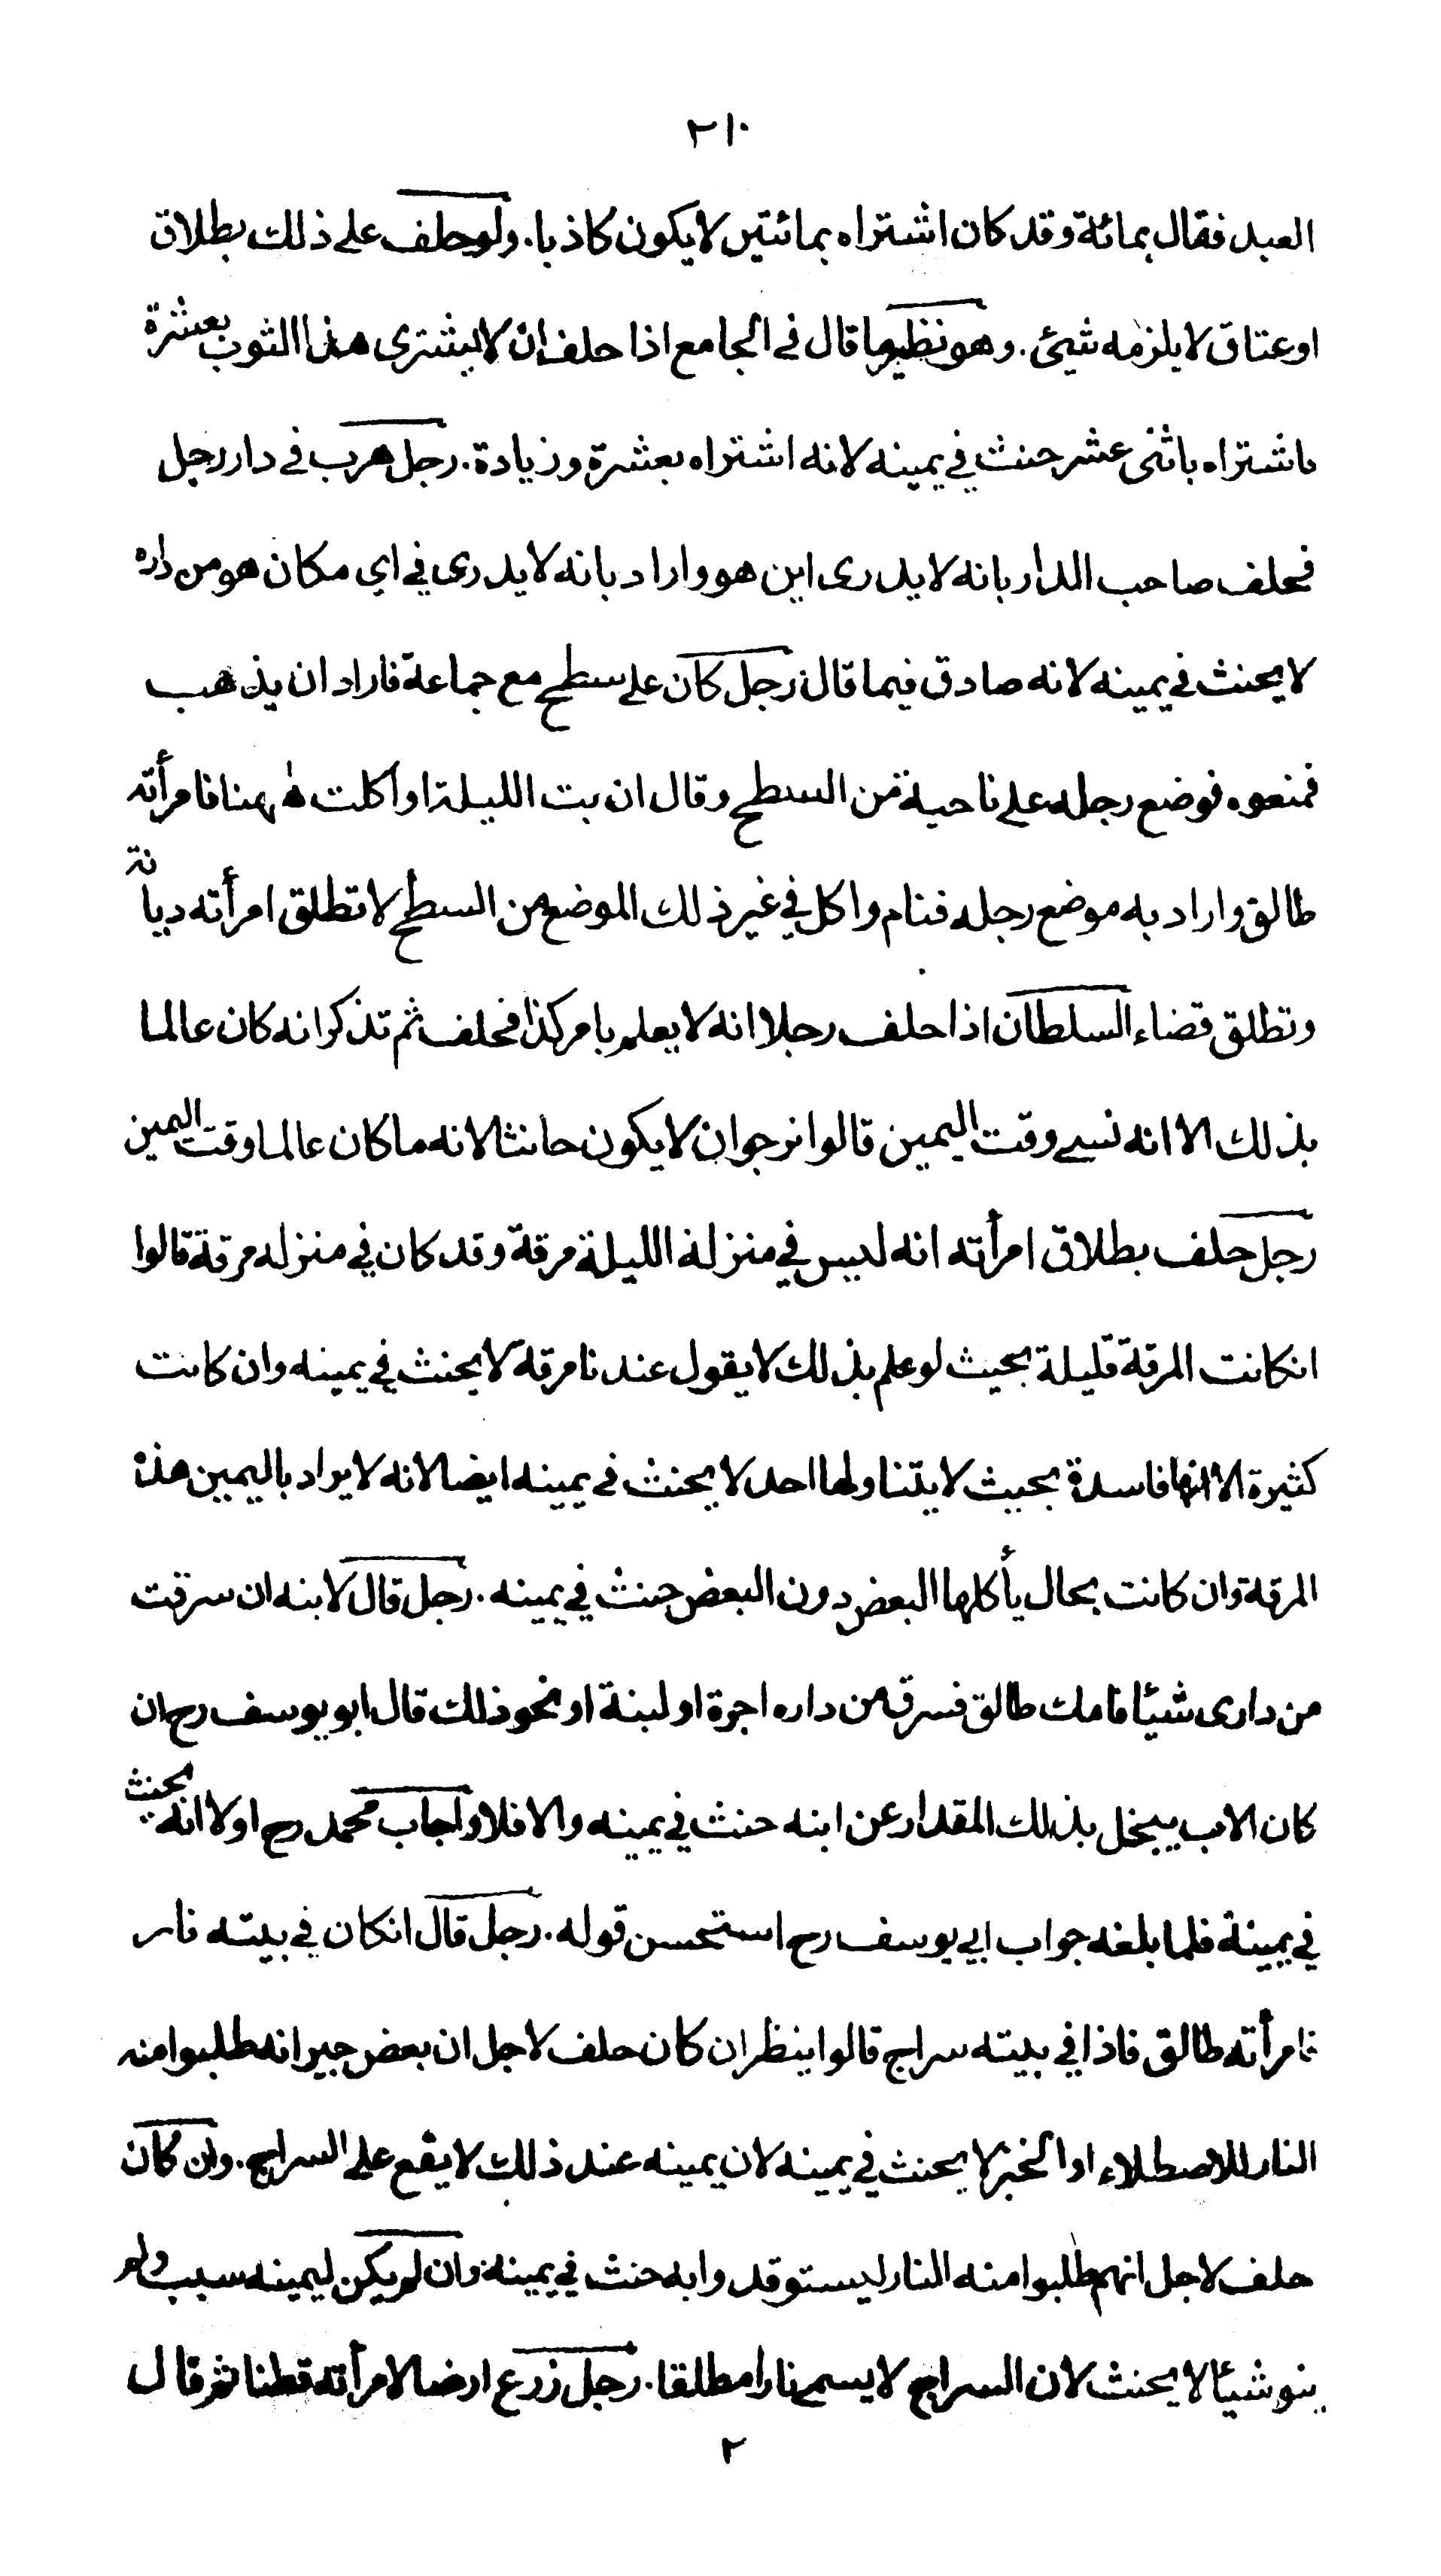 ٢١٠
العبد فقال بمائة وقد كان اشتراه بمائتين لا يكون كاذبا. ولو حلف على ذلك بطلاق
او عتاق لا يلزمه شيئ. وهو نظير ما قال في الجامع اذا حلف ان لا يشترى هذا الثوب بعشرة
فاشتراه باثنى عشر حنث في يمينه لانه اشتراه بعشرة وزيادة. رجل هرب في دار رجل
فحلف صاحب الدار بانه لا يدرى اين هو واراد بانه لا يدرى في اي مكان هو من داره
لا يحنث في يمينه لانه صادق فيما قال رجل كان على سطح مع جماعة فاراد ان يذهب
فمنعوه فوضع رجله على ناحية من السطح وقال ان بت الليلة او اكلت ههنا فامرأته
طالق واراد به موضع رجله فنام واكل في غير ذلك الموضع من السطح لا تطلق امرأته ديانة
وتطلق قضاء السلطان اذا حلف رجلا انه لا يعلم بامر كذا فحلف ثم تذكر انه كان عالما
بذلك الا انه نسي وقت اليمين قالوا نرجوان لا يكون حانثا لانه ما كان عالما وقت اليمين
رجل حلف بطلاق امرأته انه ليس في منزله الليلة مرقة وقد كان في منزله مرقة قالوا
انكانت المرقة قليلة بحيث لو علم بذلك لا يقول عندنا مرقة لا يحنث في يمينه وان كانت
كثيرة الا انها فاسدة بحيث لا يتناولها احد لا يحنث في يمينه ايضا لانه لا يراد باليمين هذه
المرقة وان كانت بحال يأكلها البعض دون البعض حنث في يمينه. رجل قال لابنه ان سرقت
من دارى شيئا فامك طالق فسرق من داره اجرة او لبنة او نحو ذلك قال ابو يوسف رح ان
كان الاب يبخل بذلك المقدار عن ابنه حنث في يمينه والا فلا واجاب محمد رح اولا انه يحنث
في يمينه فلما بلغه جواب ابي يوسف رح استحسن قوله. رجل قال انكان في بيته نار
فامرأته طالق فاذا في بيته سراج قالوا ينظر ان كان حلف لاجل ان بعض جيرانه طلبوا منه
النار للاصطلاء او الخبز لا يحنث في يمينه لان يمينه عند ذلك لا يقع على السراج. وان كان
حلف لاجل انهم طلبوا منه النار ليستوقدوا به حنث في يمينه وان لم يكن ليمينه سبب ولم
ينو شيئا لا يحنث لان السراج لا يسمى نارا مطلقا. رجل زرع ارضا لامرأته قطنا ثم قال
٢